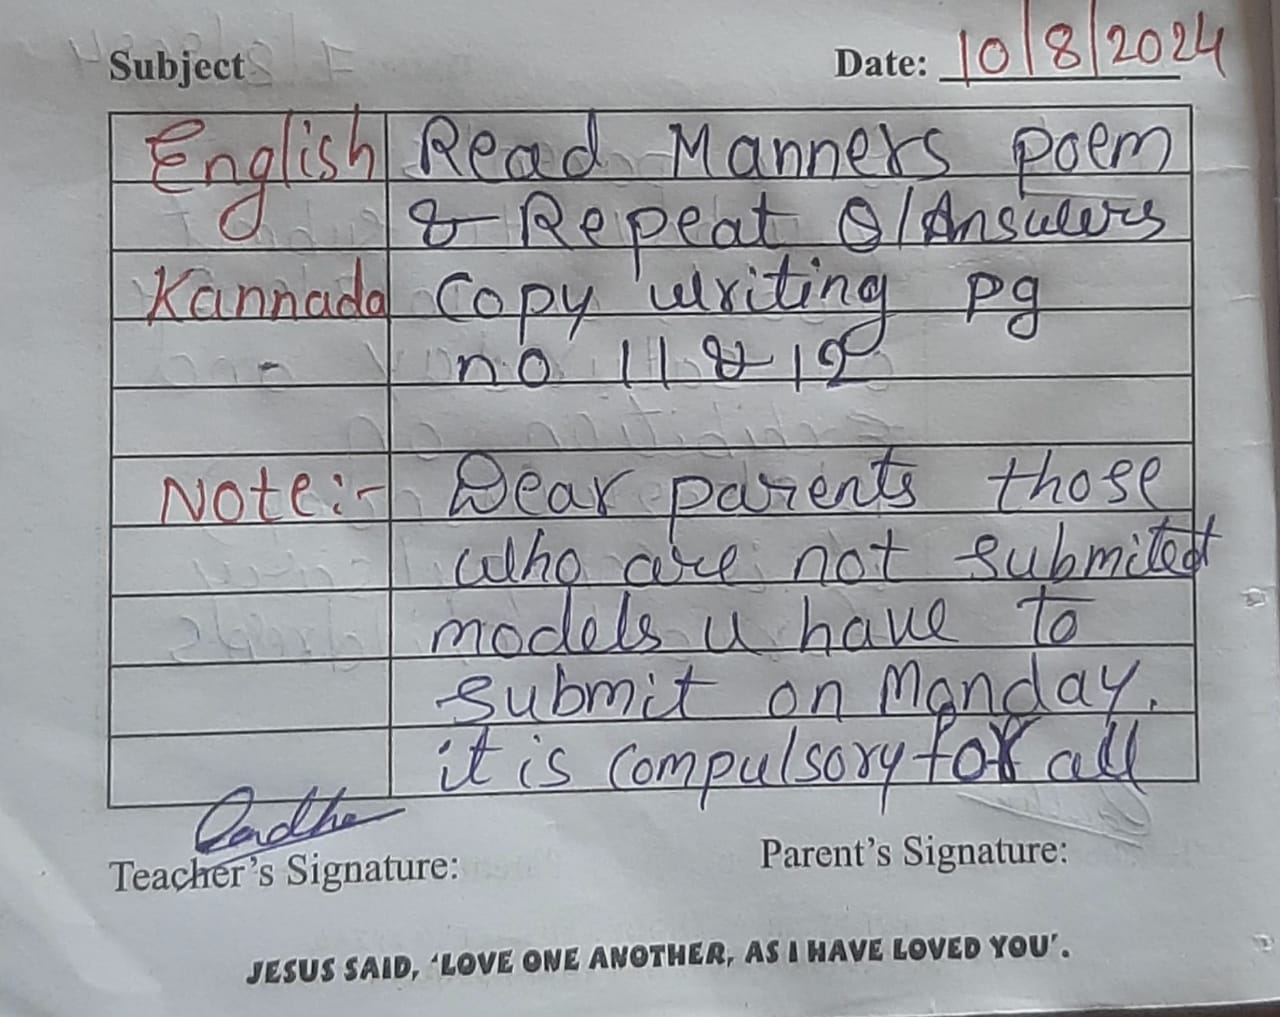 Subject Date: 10/8/2024
English Read Manners poem
& Repeat Q/Answers
Kannada Copy writing pg
no 11 & 12
Note:- Dear parents those
who are not submited
models u have to
submit on Monday.
it is compulsory for all
Teacher's Signature: Parent's Signature:
JESUS SAID, 'LOVE ONE ANOTHER, AS I HAVE LOVED YOU'.